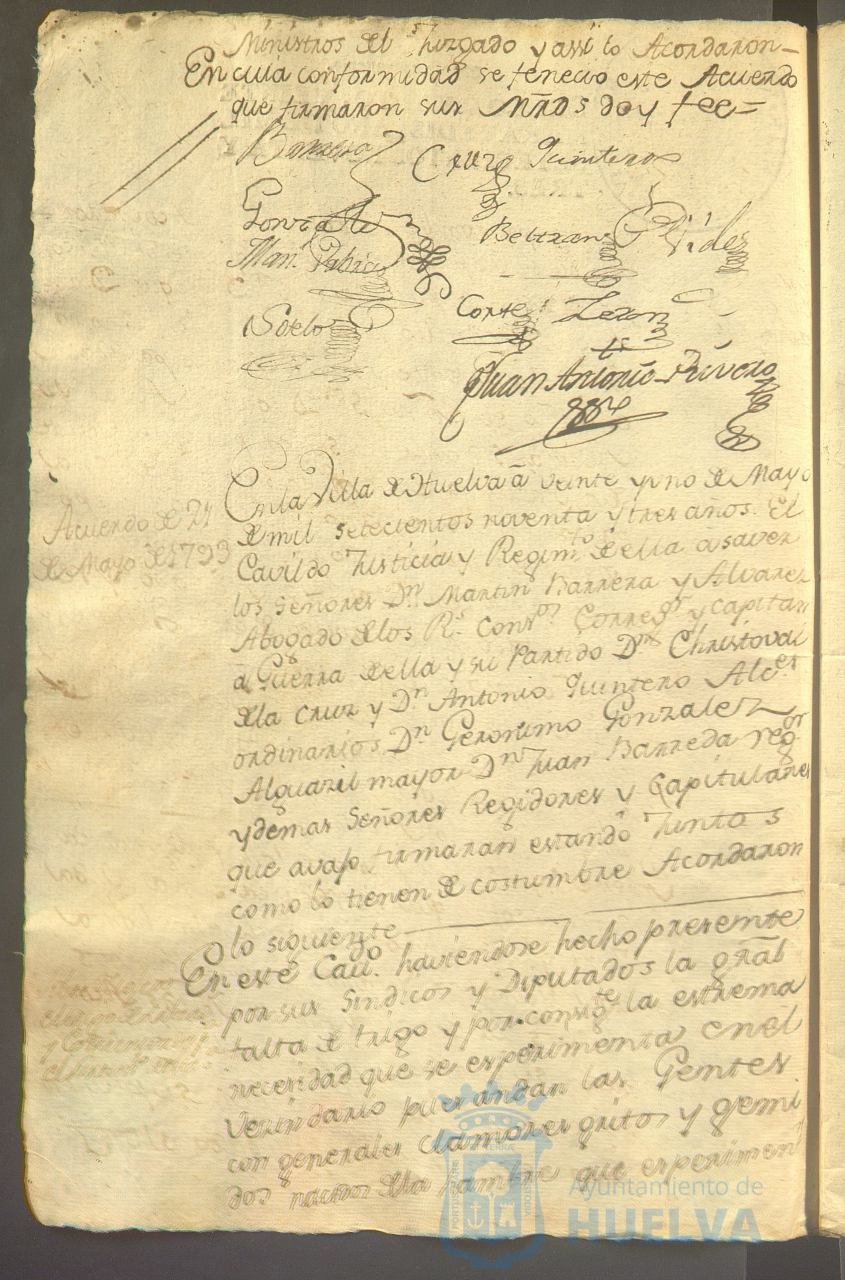 Ministros del Juzgado y assi lo Acordaron_
En cuia conformidad se fenecio este Acuerdo
que firmaron sus Mrds doy fee=
Barrera
Cruz
Quintero
Gonzalez
Beltran
Videz
Man.
Sotelo
Corte
Lezon
Juan Antonio Rivero
Acuerdo de 21
de Mayo de 1793
En la Villa de Huelva â veinte y uno de Mayo
de mil setecientos noventa y tres años. El
Cavildo Justicia y Regimto. de ella a saver
los señores Dn. Martin Barrera y Alvarez
Abogado de los Rs. Consos. Corregr. y capitan
a Guerra de ella y su Partido Dn. Christoval
de la Cruz y Dn. Antonio Quintero Alces.
ordinarios Dn. Geronimo Gonzalez
Alguazil mayor Dn. Juan Barreda regor.
y demas Señores Regidores y Capitulares
que avajo firmaran estando Juntos
como lo tienen de costumbre Acordaron
lo siguiente
En este Cavdo. haviendose hecho presente
por sus Sindicos y Diputados la grãl
falta de trigo y por consigte. la estrema
necesidad que se experimenta en el
Vecindario pues andan las Gentes
con generales clamores gritos y gemi
dos nacidos de la hambre que experimen
Ayuntamiento de
HUELVA